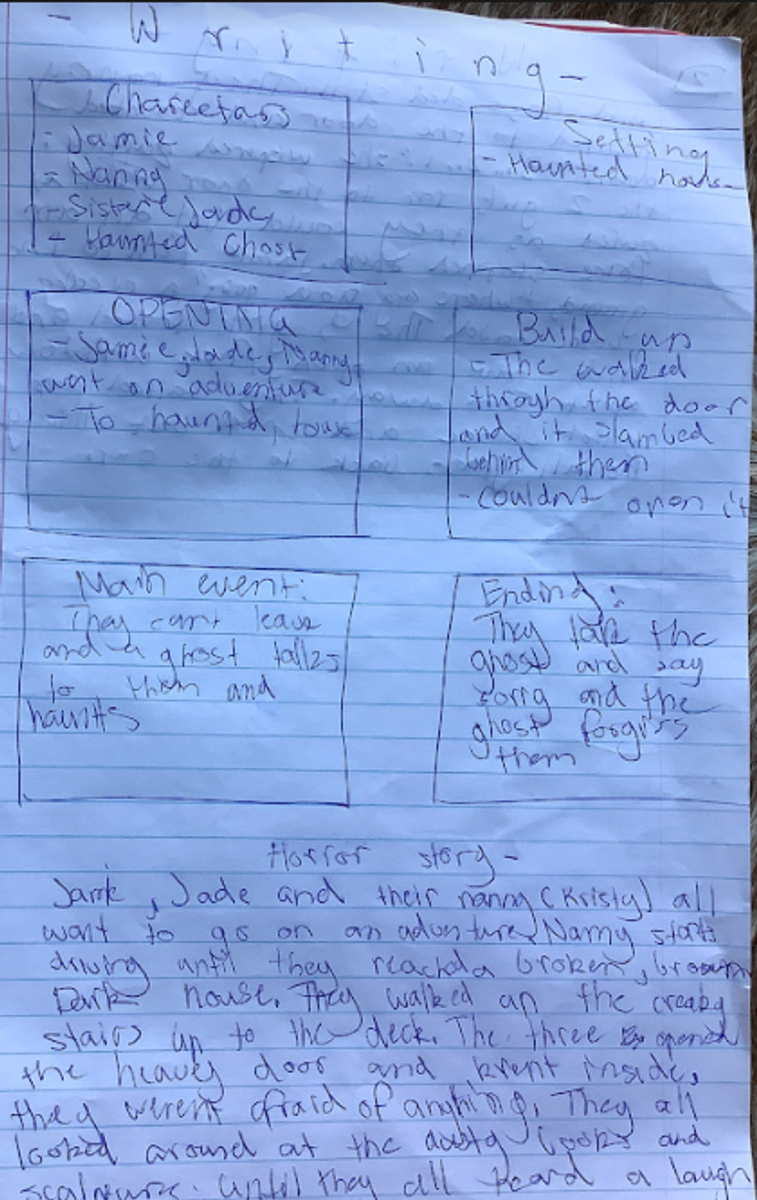 - Writing -
Charectars
- Jamie
- Nanny
- Sister Jade
- Haunted Ghost
Setting
- Haunted hous-
OPENING
- Jamie, Jade, Nanny
went on adventure
- To haunted, house
Build up
- The walked
throygh the door
and it slambed
behind them
- couldnt open it
Main event:
They cant leave
and a ghost talks
to them and
haunts
Ending:
They talk the
ghost and say
sorry and the
ghost forgivs
them
Horror story -
Jamie, Jade and their nanny (Kristy) all
want to go on an adventure. Nanny starts
driving until they reachd a broken, brown
Dark house. They walked up the creaky
stairs up to the deck. The three opened
the heavey door and krept inside,
they werent afraid of anything. They all
looked around at the dusty books and
until they all heard a laugh